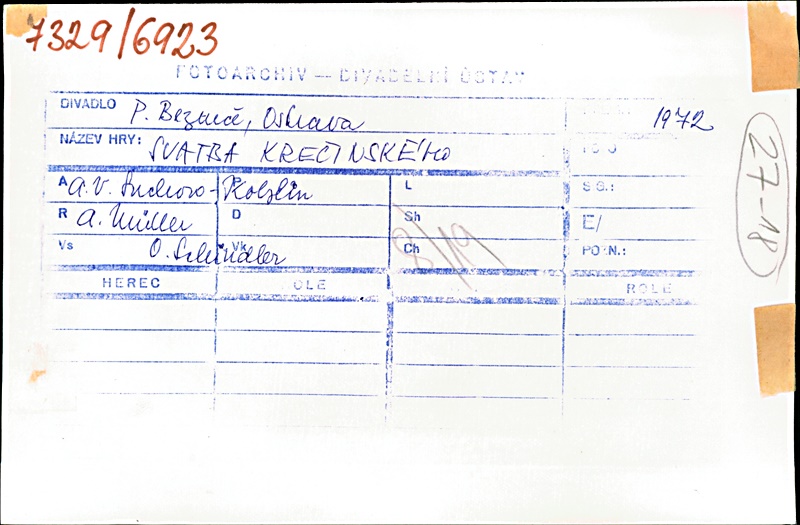 7329/6923
FOTOARCHIV — DIVADELNÍ ÚSTAV
DIVADLO P. Bezruče, Ostrava 1972
NÁZEV HRY: SVATBA KREČINSKÉHO
A A. V. Suchovo-Kobylin L SG.:
R A. Müller D Sh E/
Vs O. Schindler Vk Ch POZN.:
8/19
HEREC ROLE ROLE
27-18